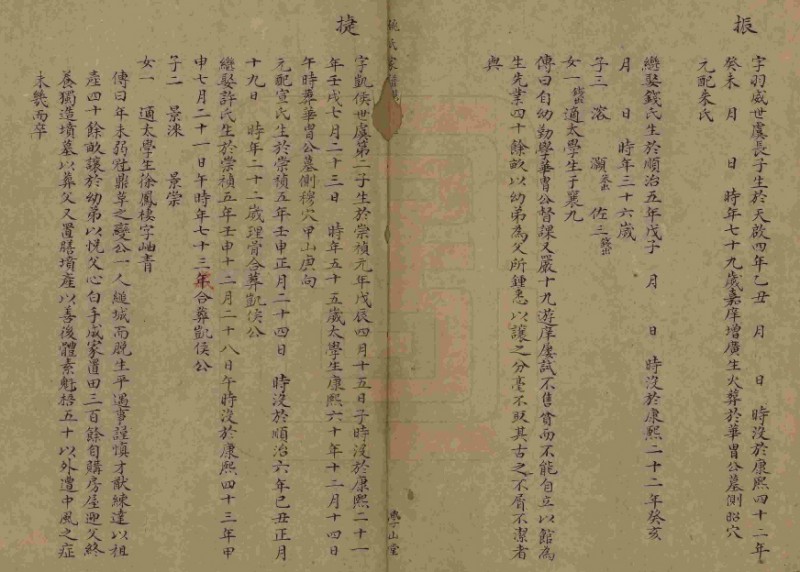 振
字羽威世虞長子生於天啟四年乙丑 月 日 時沒於康熙四十二年
癸未 月 日 時年七十九歲嘉庠增廣生火葬於華胄公墓側昭穴
元配朱氏
繼娶錢氏生於順治五年戊子 月 日 時沒於康熙二十二年癸亥
月 日 時年三十六歲
子三 溶 灝朱出 佐三錢出
女一錢出適太學生于襄九
傳曰自幼勤學華胄公督課又嚴十九遊庠屢試不售貧而不能自立以館為
生先業四十餘畝以幼弟為父所鍾悉以讓之分毫不取其古之不屑不潔者
與
學山堂
捷
字凱侯世虞第二子生於崇禎元年戊辰四月十五日子時沒於康熙二十一
年壬戌七月二十三日 時年五十五歲太學生康熙六十年十二月十四日
午時葬華胄公墓側穆穴甲山庚向
元配宣氏生於崇禎五年壬申正月二十四日 時沒於順治六年己丑正月
十九日 時年二十二歲理骨合葬凱侯公
繼娶許氏生於崇禎五年壬申十二月二十八日午時沒於康熙四十三年甲
申七月二十一日午時年七十三年合葬凱侯公
子二 景淶 景崇
女一 適太學生徐鳳樓字岫青
傳曰年未弱冠鼎革之變公一人縋城而脫生平遇事謹慎才猷練達以祖
產四十餘畝讓於幼弟以悅父心白手成家置田三百餘自購房屋迎父終
養獨造墳墓以葬父又置膳墳產以善後體素魁梧五十以外遭中風之症
未幾而卒